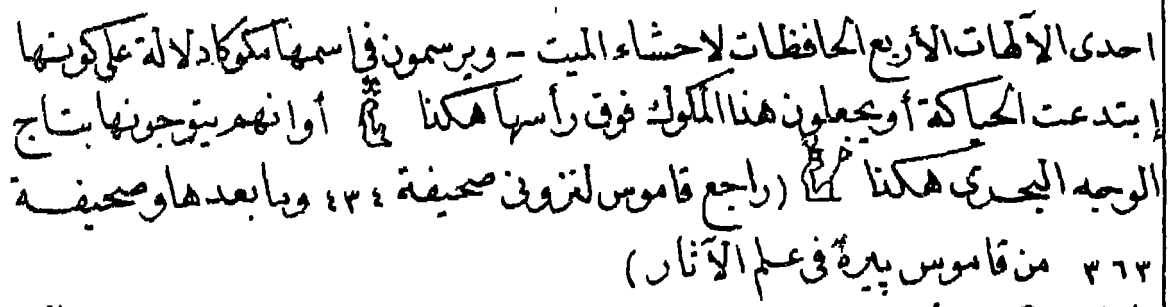 احدى الآلهات الأربع الحافظات لاحشاء الميت - ويرسمون فى اسمها مكوكا دلالة على كونها
إبتدعت الحياكة أو يجعلون هذا المكوك فوق رأسها هكذا أو انهم يتوجونها بتاج
الوجه البحرى هكذا (راجع قاموس لنزونى صحيفة ٤٣٤ وما بعدها وصحيفة
٣٦٣ من قاموس پيره فى علم الآثار)